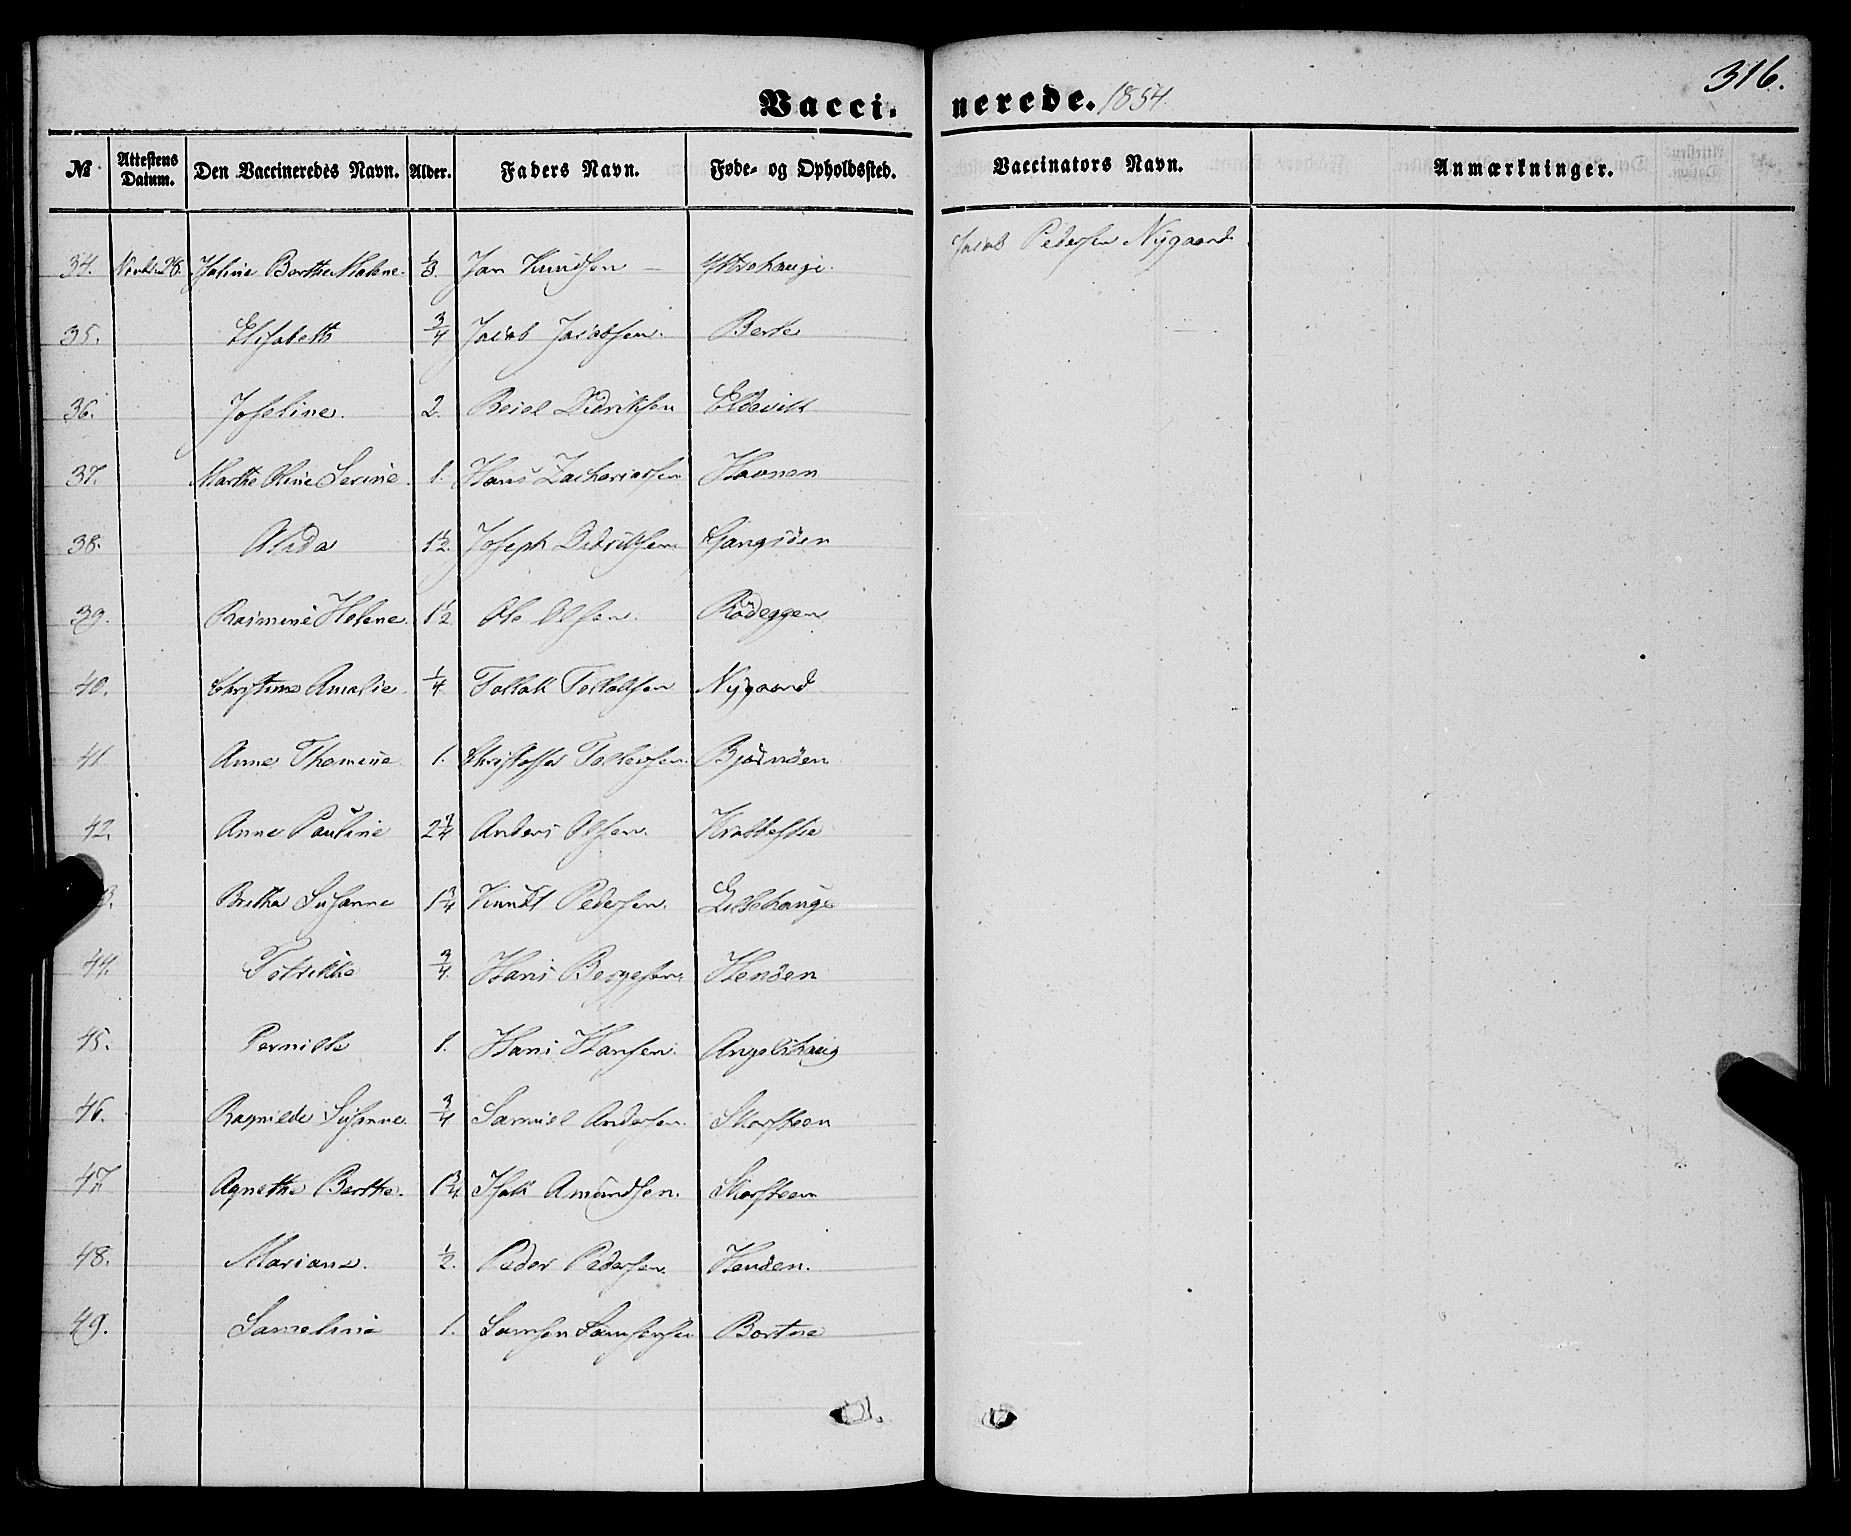 316.
Vacci- nerede. 1854.
№ Attestens Datum. Den Vaccineredes Navn. Alder. Faders Navn. Føde- og Opholdssted. Vaccinators Navn. Anmærkninger.
34. 28. Berthe Malene 1/3 Jan Knudsen Ytrehauge Jacob Pedersen Nygaard
35. Elisabeth 3/4 Jacob Jacobsen Berle
36. Joseline. 2. Didriksen Eldevik
37. Marthe Oline Serine 1. Hans Zachariassen Havnen
38. Alida 1½ Joseph Didriksen Gangsöen
39. Rasmine Helene 1½ Ole Olsen. Rödeggen
40. Christine Amalie 1/4 Tollak Tollaksen Nygaard
41. Anne Thomine 1. Christoffer Bjørnöen
42. Anne Pauline 2 3/4 Anders Olsen
Britha Susanne 1 3/4 Knudt Pedersen
44. 3/4 Hans Børgesen Henöen
45. Pernille 1. Hans Hansen. Angelshaug
46. Ragnilde Susanne 3/4 Samuel Andersen Skorsteen
47. Agnethe Berthe. 1 3/4 Isak Amundsen. Skorsteen
48. Mariane. 1/2. Peder Pedersen Henöen.
49. Sameline 1. Samson Samsonsen Bortne